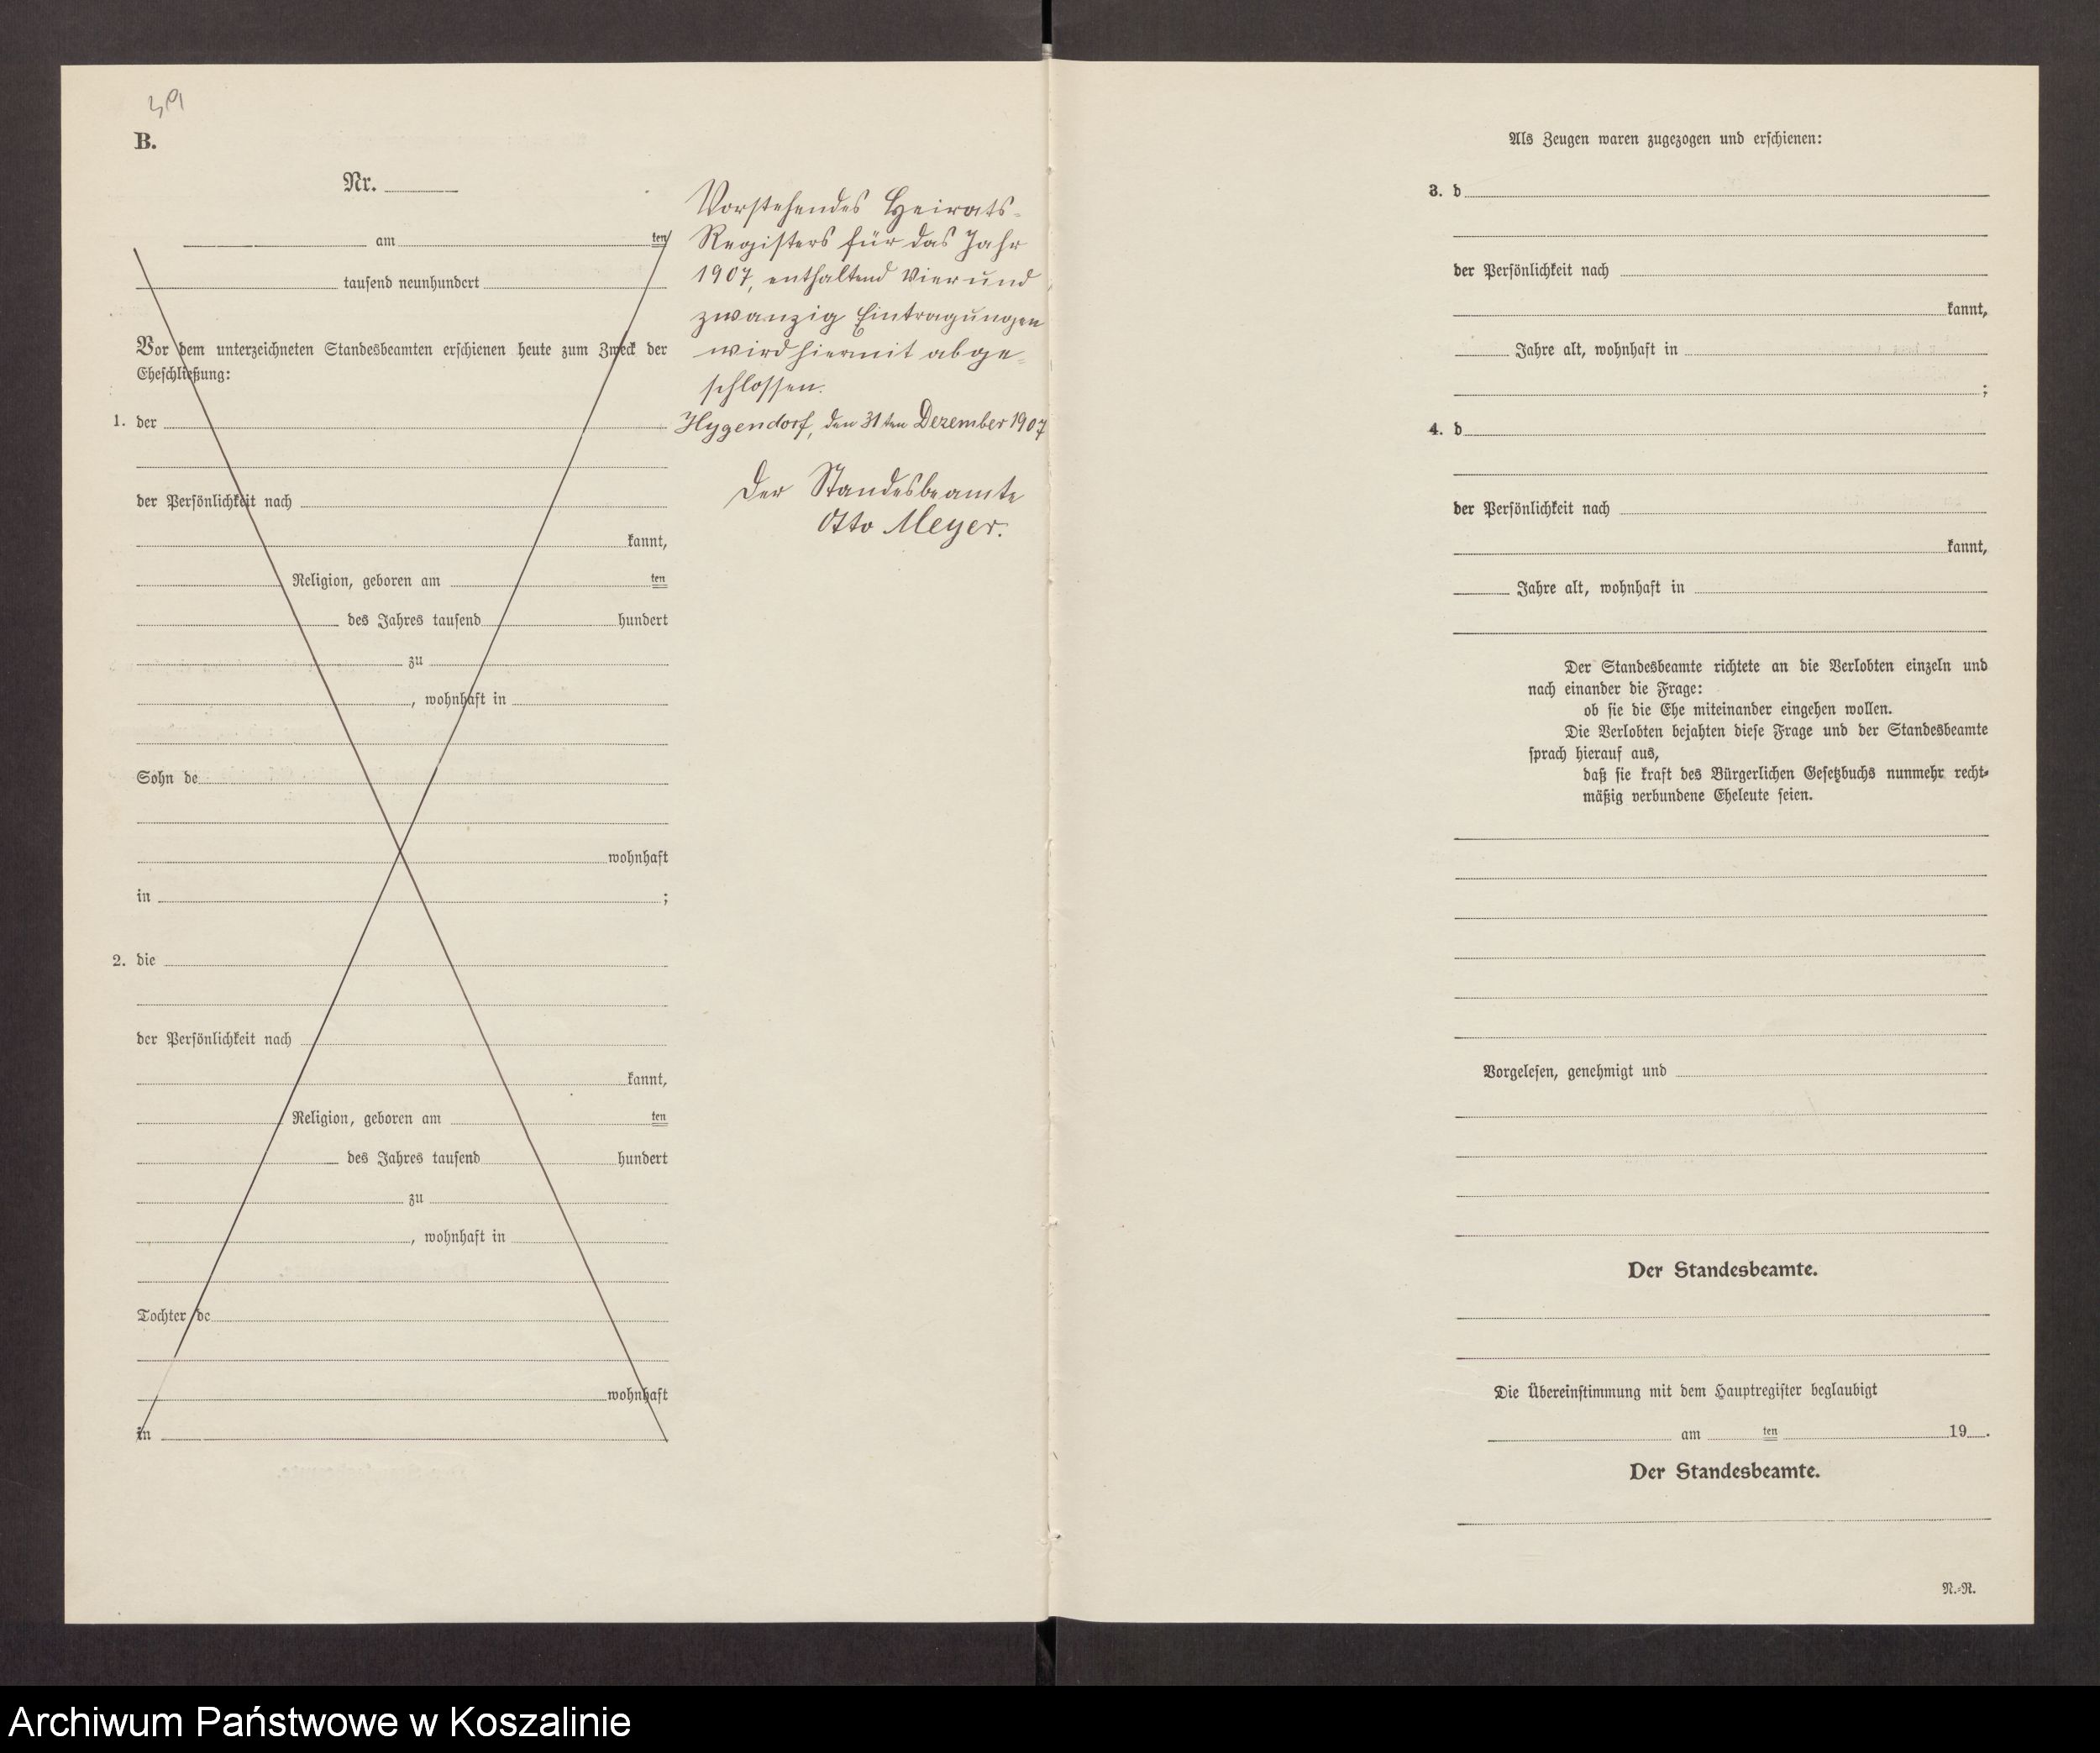 B.
Nr.
am ten
tausend neunhundert
Vor dem unterzeichneten Standesbeamten erschienen heute zum Zweck der
Eheschließung:
1. der
der Persönlichkeit nach
kannt,
Religion, geboren am ten
des Jahres tausend hundert
zu
, wohnhaft in
Sohn de
wohnhaft
in ;
2. die
der Persönlichkeit nach
kannt,
Religion, geboren am ten
des Jahres tausend hundert
zu
, wohnhaft in
Tochter de
wohnhaft
in
Vorstehendes Heirats-
Registers für das Jahr
1907, enthaltend Vierund
zwanzig Eintragungen
wird hiermit abge-
schlossen.
Hygendorf, den 31ten Dezember 1907
Der Standesbeamte
Otto Meyer.
Als Zeugen waren zugezogen und erschienen:
3. d
der Persönlichkeit nach
kannt,
Jahre alt, wohnhaft in
;
4. d
der Persönlichkeit nach
kannt,
Jahre alt, wohnhaft in
Der Standesbeamte richtete an die Verlobten einzeln und
nach einander die Frage:
ob sie die Ehe miteinander eingehen wollen.
Die Verlobten bejahten diese Frage und der Standesbeamte
sprach hierauf aus,
daß sie kraft des Bürgerlichen Gesetzbuchs nunmehr recht-
mäßig verbundene Eheleute seien.
Vorgelesen, genehmigt und
Der Standesbeamte.
Die Übereinstimmung mit dem Hauptregister beglaubigt
am ten 19 .
Der Standesbeamte.
N.-R.
Archiwum Państwowe w Koszalinie